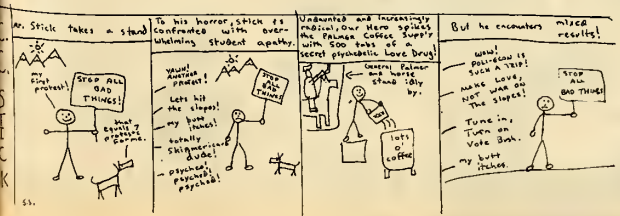 Mr. Stick takes a stand
my
first
protest!
STOP ALL
BAD
THINGS!
that
equals 7
protests
for me.
S.S.
To his horror, Stick is
confronted with over-
whelming student apathy.
YAWN!
ANOTHER
PROTEST!
Lets hit
the slopes!
my butt
itches!
totally
Skiamerican
dude!
psyched,
psyched!
psyched!
STOP ALL
BAD
THINGS!
Undaunted and increasingly
radical, Our Hero spikes
the PALMER Coffee Supply
with 500 tabs of a
secret psychedelic Love Drug!
General Palmer
and horse
stand idly
by.
lots
o'
coffee
But he encounters mixed
results!
WOW!
POLI-ECON IS
SUCH A TRIP!
MAKE LOVE,
NOT WAR ON
The Slopes!
Tune in,
Turn on
Vote Bush.
my butt
itches.
STOP
ALL
BAD THINGS!